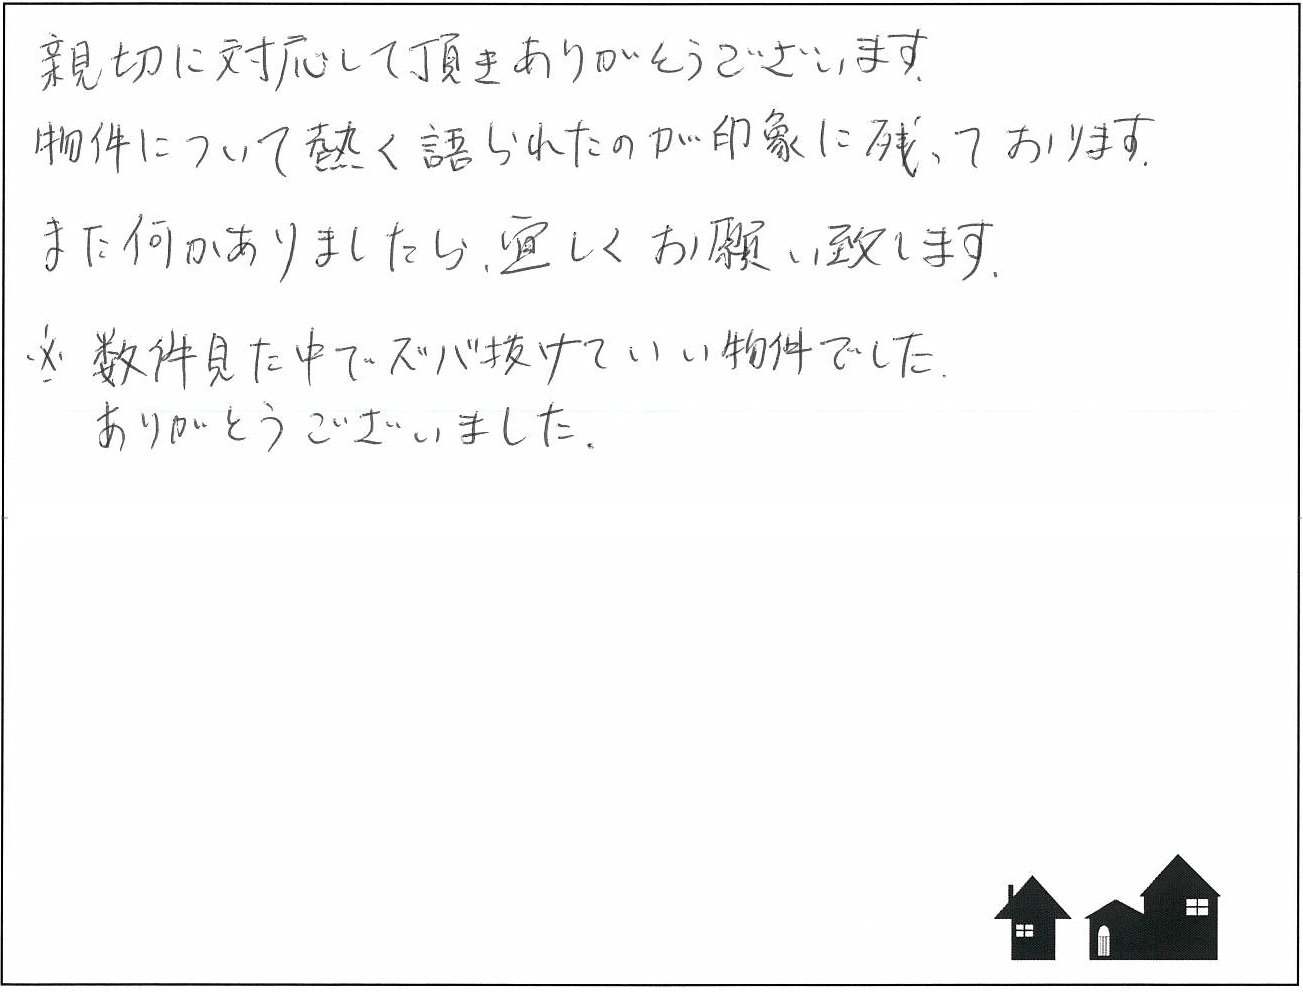 親切に対応して頂きありがとうございます.
物件について熱く語られたのが印象に残っております.
また何かありましたら、宜しくお願い致します.
※ 数件見た中でズバ抜けていい物件でした.
ありがとうございました.